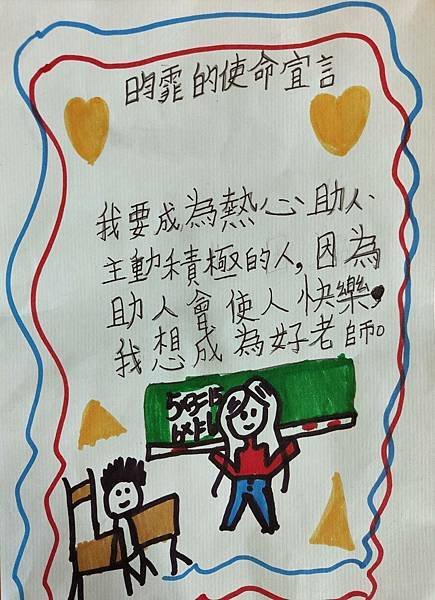 昀霏的使命宣言
我要成為熱心助人、
主動積極的人，因為
助人會使人快樂，
我想成為好老師。